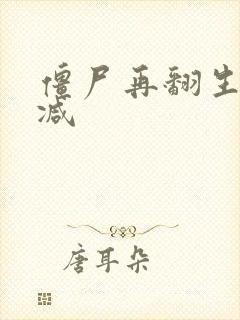 僵尸再翻生
减
唐耳朵